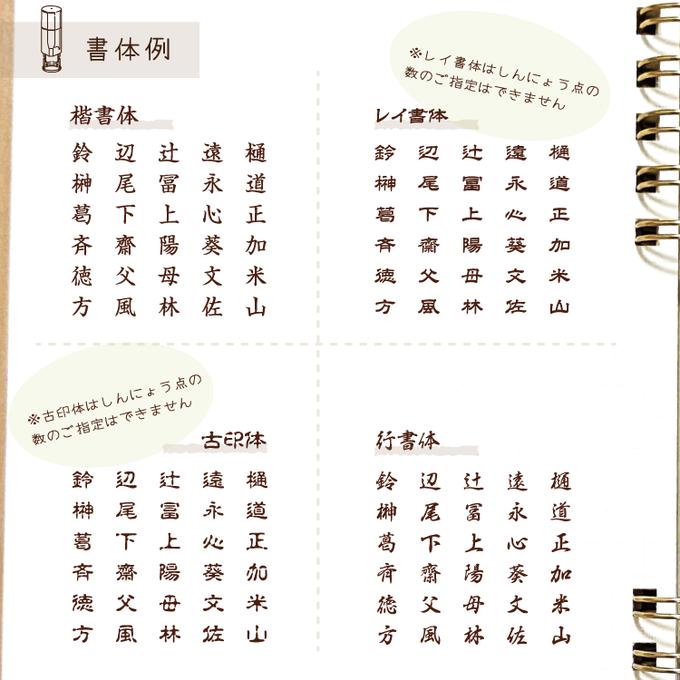 書体例
楷書体
鈴 辺 辻 遠 樋
榊 尾 冨 永 道
葛 下 上 心 正
斉 齋 陽 葵 加
徳 父 母 文 米
方 風 林 佐 山
※レイ書体はしんにょう点の
数のご指定はできません
レイ書体
鈴 辺 辻 遠 樋
榊 尾 冨 永 道
葛 下 上 心 正
斉 齋 陽 葵 加
徳 父 母 文 米
方 風 林 佐 山
※古印体はしんにょう点の
数のご指定はできません
古印体
鈴 辺 辻 遠 樋
榊 尾 冨 永 道
葛 下 上 心 正
斉 齋 陽 葵 加
徳 父 母 文 米
方 風 林 佐 山
行書体
鈴 辺 辻 遠 樋
榊 尾 冨 永 道
葛 下 上 心 正
斉 齋 陽 葵 加
徳 父 母 文 米
方 風 林 佐 山